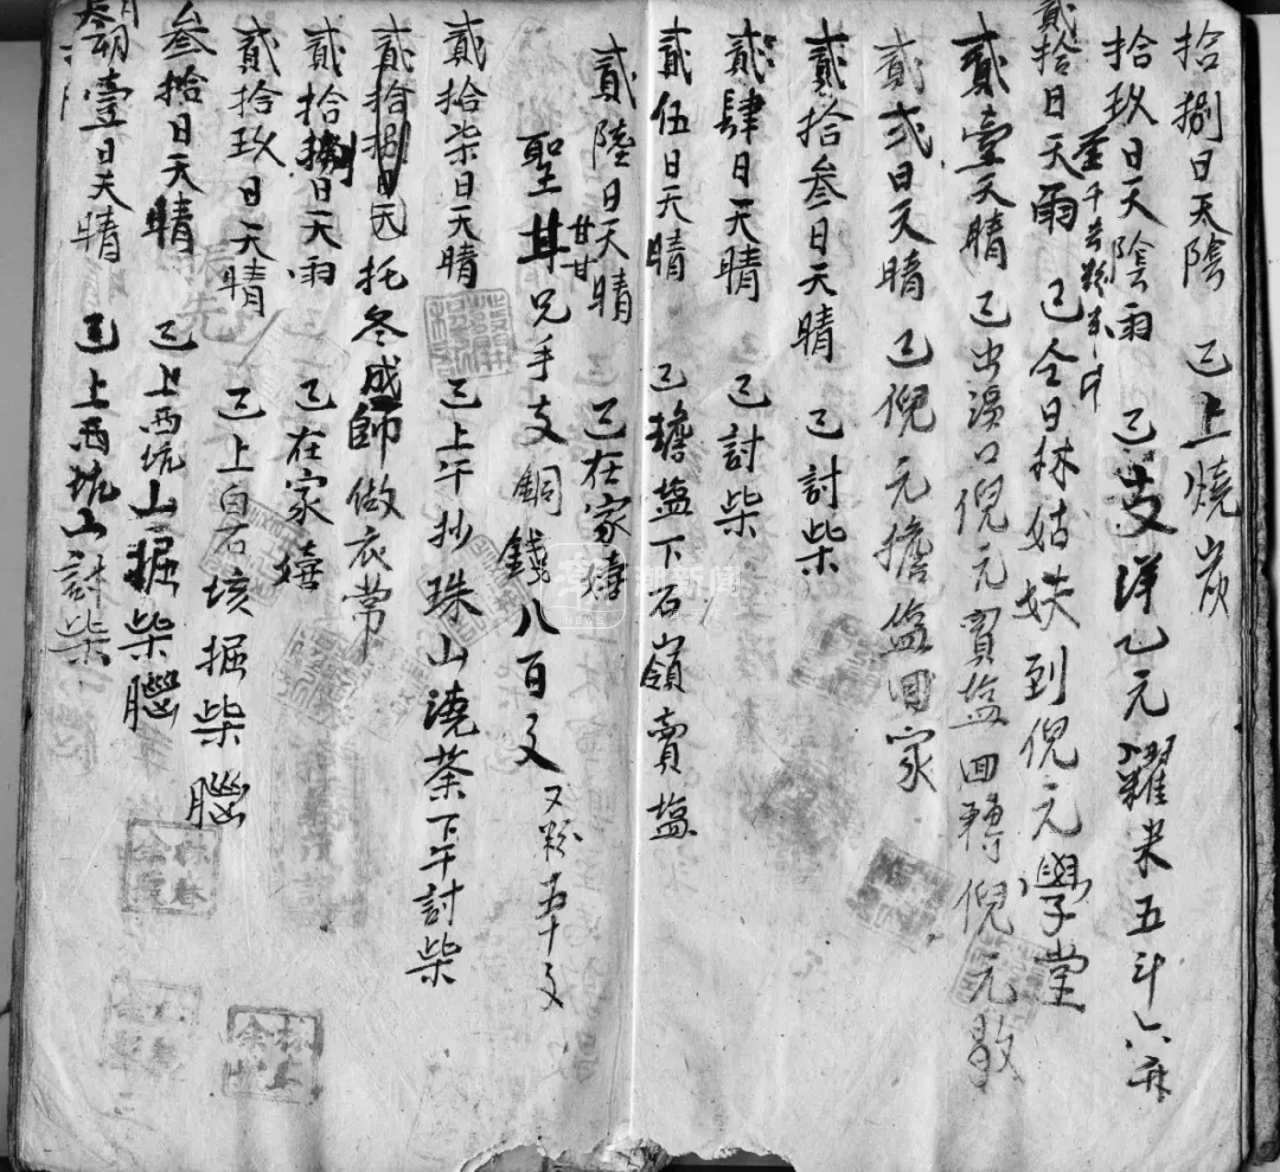 拾捌日天陰 己上燒炭
拾玖日天陰雨 己支洋乙元糴米五斗六升
貳拾日天雨 己仝日林姑妹到倪元學堂
貳壹天晴 己出溪口倪元買塩回轉倪元歇
貳弍日天晴 己倪元擔塩回家
貳拾叁日天晴 己討柴
貳肆日天晴 己討柴
貳伍日天晴 己擔塩下石嶺賣塩
貳陸日天晴 己在家嬉
聖甘兄手支銅錢八百文 又粉五十文
貳拾柒日天晴 己上午抄珠山澆茶下午討柴
貳拾捌日 托冬成師做衣常
貳拾捌日天雨 己在家嬉
貳拾玖日天晴 己上白石垓掘柴腦
叁拾日天晴 己上西坑山掘柴腦
壹日天晴 己上西坑山討柴
潮新闻
NEWS